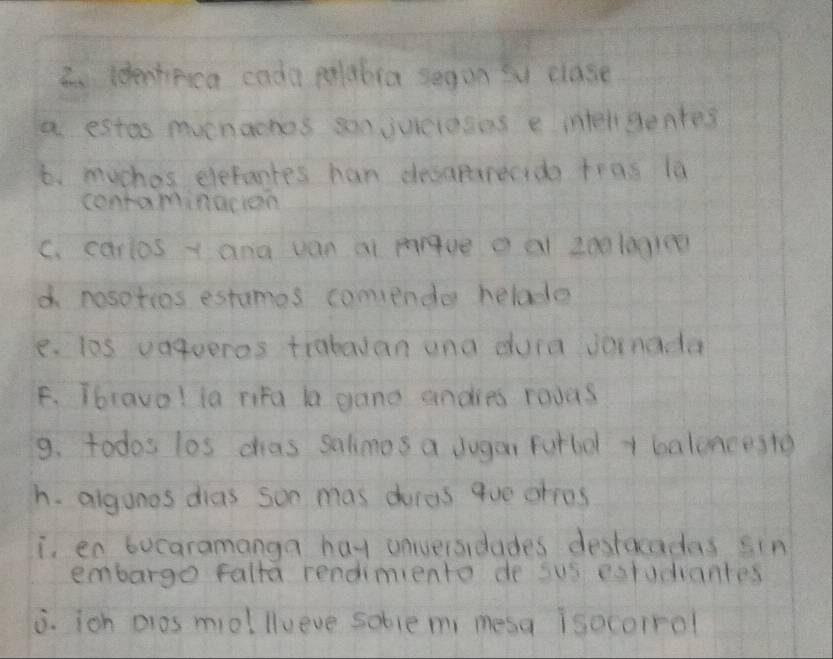 2. identifica cada palabra segon su clase
a. estos muchachos son juiciosos e inteligentes
b. muchos elefantes han desaparecido tras la
contaminación
c. carlos y ana van al parque o al zoologico
d. nosotros estamos comiendo helado
e. los vaqueros trabajan una dura jornada
F. ¡bravo! la rifa la gano andres rojas
g. todos los dias salimos a jugar futbol y baloncesto
h. algunos dias son mas duros que otros
i. en bucaramanga hay universidades destacadas sin
embargo falta rendimiento de sus estudiantes
j. ¡oh Dios mio! llueve sobre mi mesa ¡socorro!